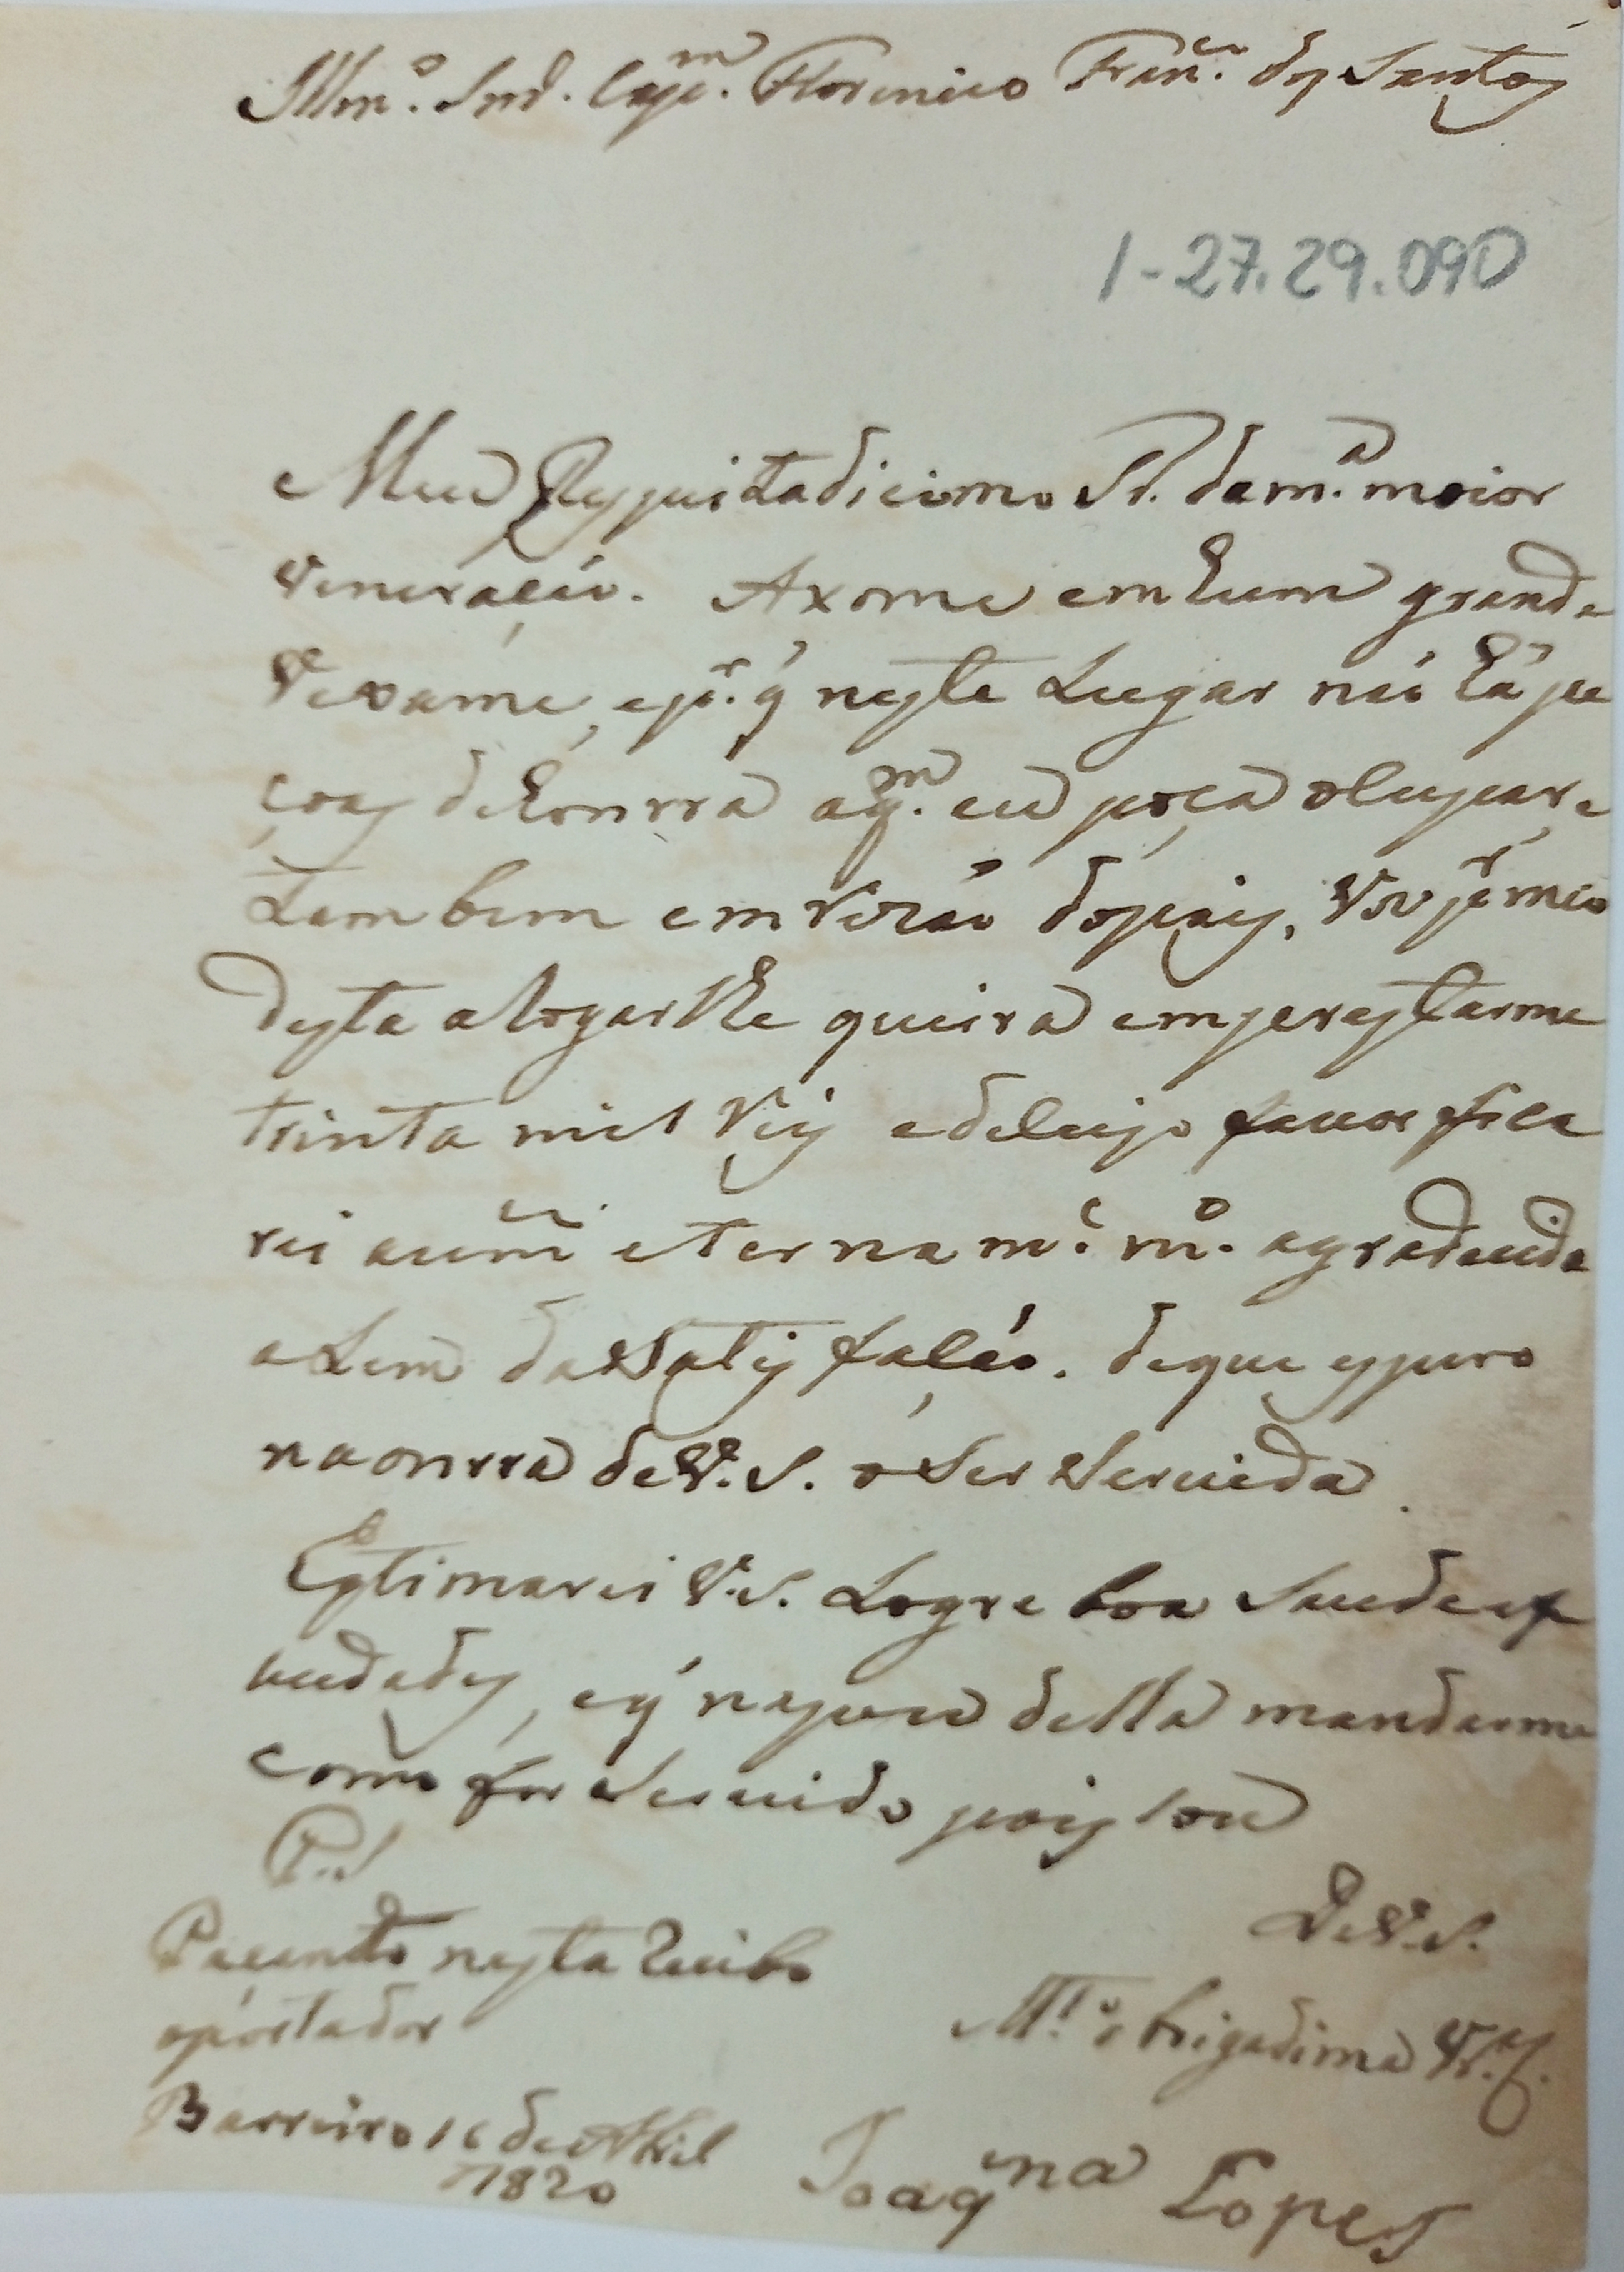 Illmo. Snr. Capm. Florencio Franco. dos Santos
1-27.29.090
Meu Respeitadicimo Sr. da ma. maior
Veneração. Axome em hum grande
Vexame, e pr. q neste Lugar não há pe
çoas de honrra a qm. eu poça ocupar, e
tambem em Rezão dos pais, Vou pr. meio
desta a Rogar lhe queira emperestarme
trinta mil Reis e de cujo favor fica
rei a um eternamte. mto. agradecida
a Lem da Satisfação. de que espero
na onrra de V. S. o Ser Servida.
Estimarei V. S. Logre boa Saude e f
audades, e q na posse della mandarme
como for Servido pois sou
P. S.
Pacendo nesta Recibo
o portador
De V. S.
Mto. obrigadima Vr.
Barreiro 16 de Abril
1820
Joaqna Lopes